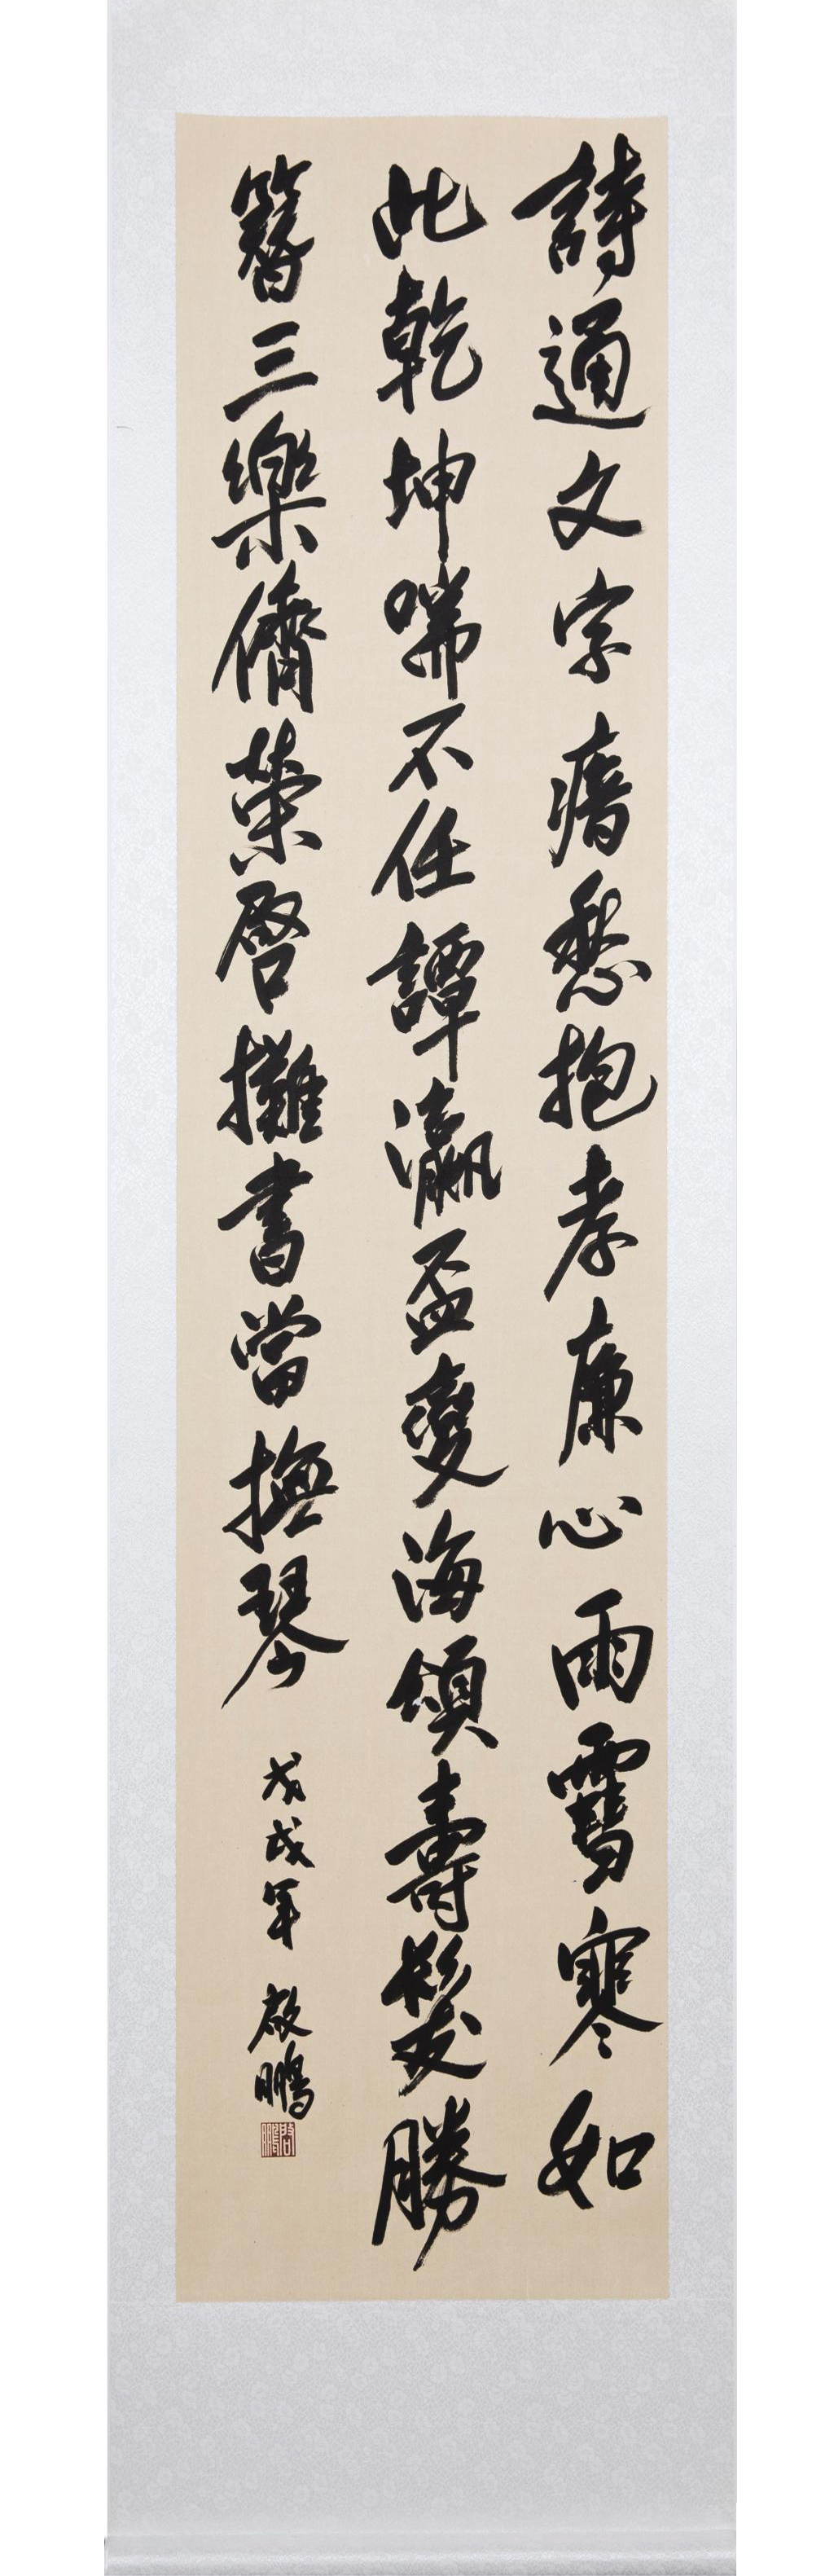 詩通文字瘖愁抱孝廉心雨雪寒如
此乾坤喘不任譚瀛盃變海頌壽髮勝
簪三樂儕榮啓攤書當撫琴
戊戌年 啟鵬
啟鵬